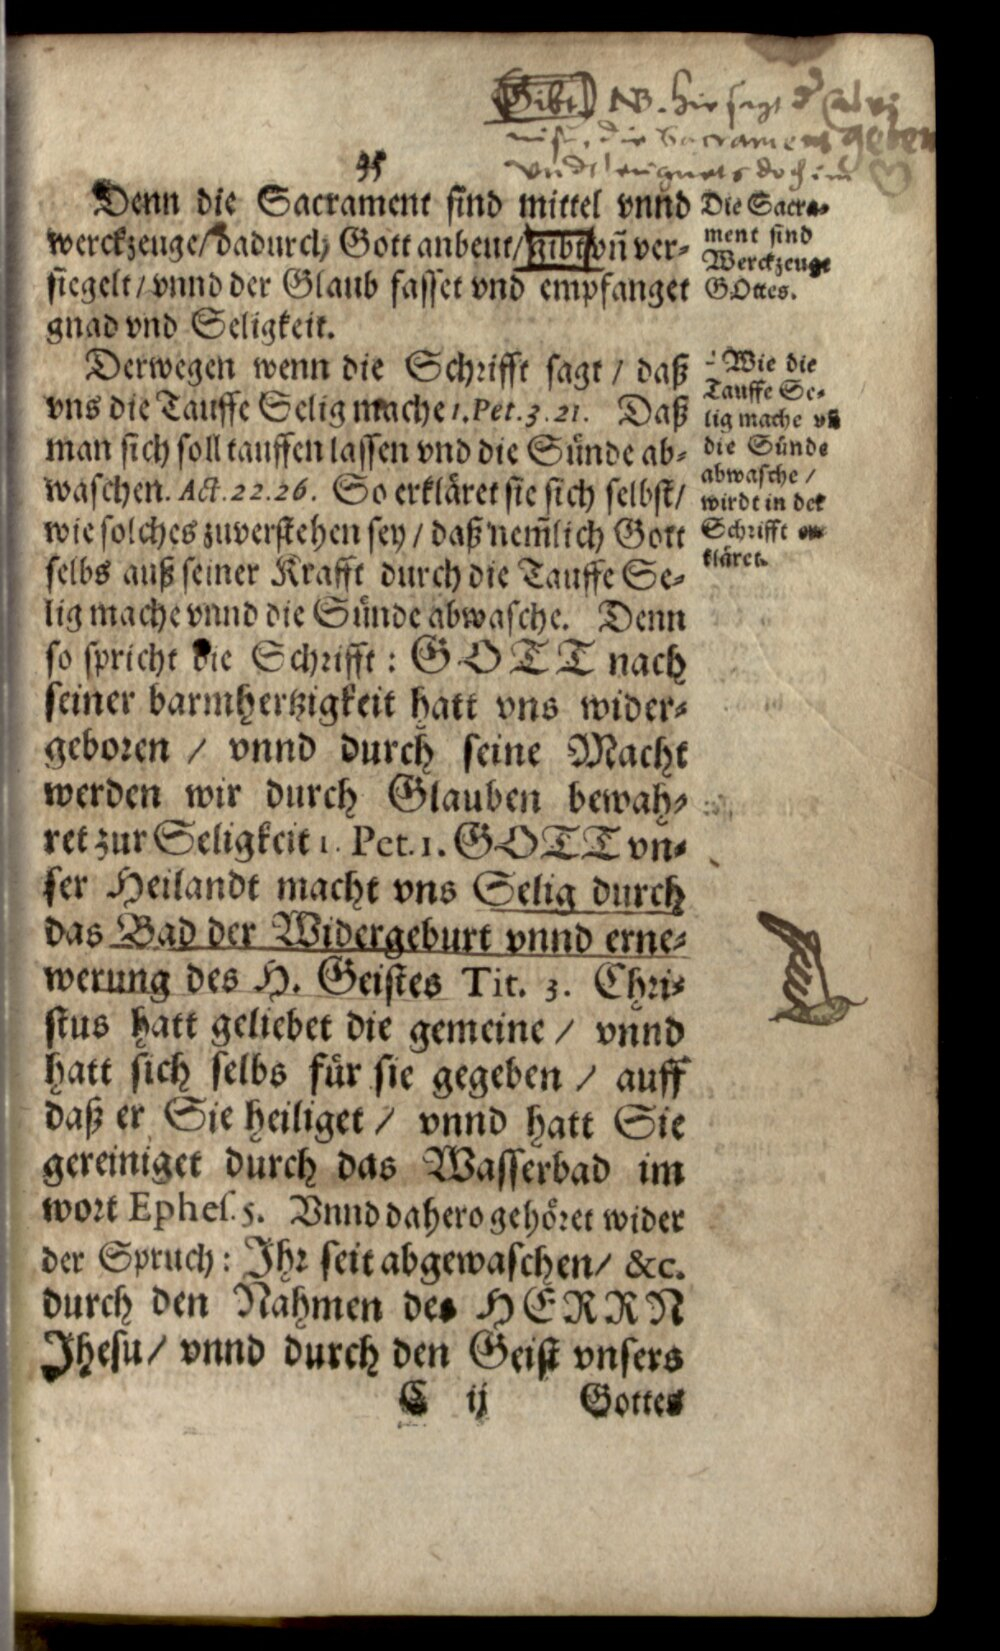 Gibt NB. hie sagt d Calvi
nist, die Sacrament geben
vndt leugnets doch im
35
Denn die Sacrament sind mittel vnnd
werckzeuge/ dadurch Gott anbeut/ gibt vn̄ ver-
siegelt/ vnnd der Glaub fasset vnd empfanget
gnad vnd Seligkeit.
Die Sacra-
ment sind
Werckzeuge
GOttes.
Derwegen wenn die Schrifft sagt / daß
vns die Tauffe Selig mache 1. Pet. 3. 21. Daß
man sich soll tauffen lassen vnd die Sünde ab-
waschen. Act. 22. 26. So erkläret sie sich selbst/
wie solches zuverstehen sey / daß nem̄lich Gott
selbs auß seiner Krafft durch die Tauffe Se-
lig mache vnnd die Sünde abwasche. Denn
so spricht die Schrifft : GOTT nach
seiner barmhertzigkeit hatt vns wider-
geboren / vnnd durch seine Macht
werden wir durch Glauben bewah-
ret zur Seligkeit 1. Pet. 1. GOTT vn-
ser Heilandt macht vns Selig durch
das Bad der Widergeburt vnnd erne-
werung des H. Geistes Tit. 3. Chri-
stus hatt geliebet die gemeine / vnnd
hatt sich selbs für sie gegeben / auff
daß er Sie heiliget / vnnd hatt Sie
gereiniget durch das Wasserbad im
wort Ephes. 5. Vnnd dahero gehöret wider
der Spruch : Ihr seit abgewaschen/ &c.
durch den Nahmen des HERRN
Jhesu/ vnnd durch den Geist vnsers
Wie die
Tauffe Se-
lig mache vn̄
die Sünde
abwasche /
wirdt in der
Schrifft er-
kläret.
C ij Gottes